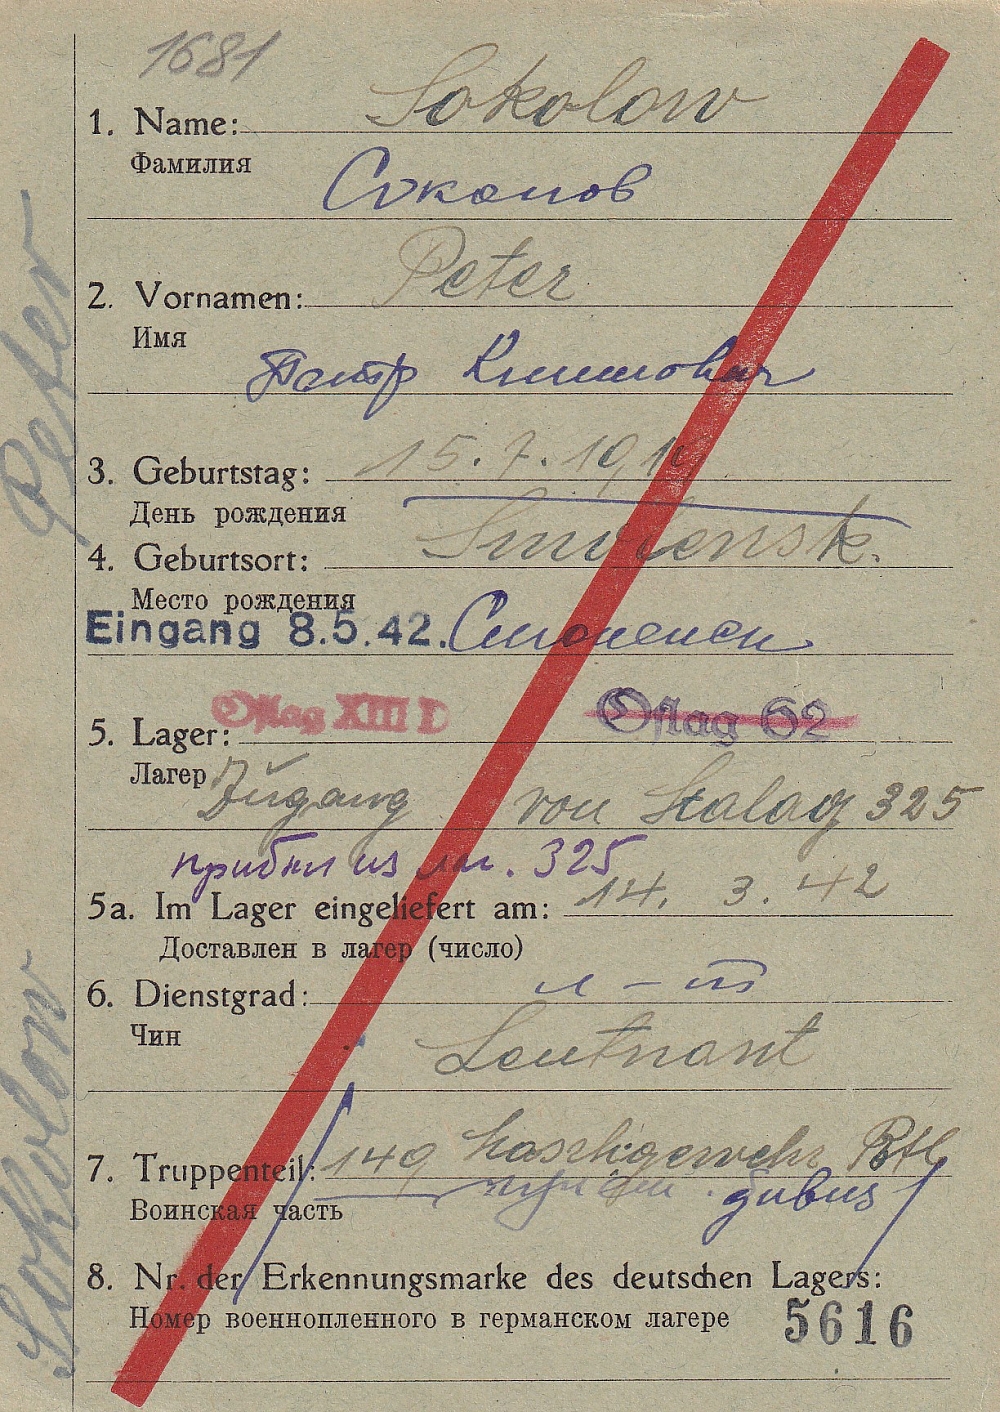 1681
1. Name: Sokolow
Фамилия
Соколов
2. Vornamen: Peter
Имя
Петр Климович
3. Geburtstag: 15.7.191
День рождения
4. Geburtsort: Smolensk.
Место рождения
Eingang 8.5.42. Смоленск
Oflag XIII D Oflag 62
5. Lager:
Лагерь
Zugang von Stalag 325
прибыл из 325
5a. Im Lager eingeliefert am: 14. 3. 42
Доставлен в лагер (число)
6. Dienstgrad: л-т
Чин
Leutnant
7. Truppenteil: 149 Btl.
Воинская часть дивиз
8. Nr. der Erkennungsmarke des deutschen Lagers:
Номер военнопленного в германском лагере 5616
Sokolow Peter